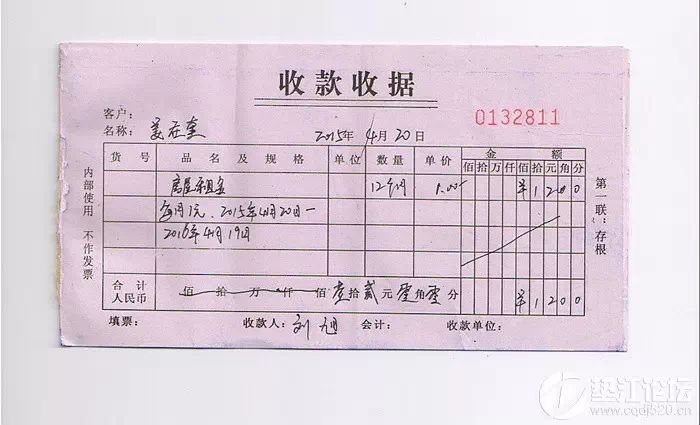 收款收据
客户：
名称：
0132811
2015年 4月20日
货号 品名及规格 单位 数量 单价 金额
佰拾万仟佰拾元角分
房屋租金 12个月 1.00 ¥1200
每月1元、2015年4月20日一
2016年4月19日
合计
人民币
佰拾万仟佰壹拾贰元零角零分 ¥1200
填票： 收款人：刘旭 会计： 收款单位：
内部使用 不作发票
第一联：存根
垫江论坛
www.cqdj520.cn